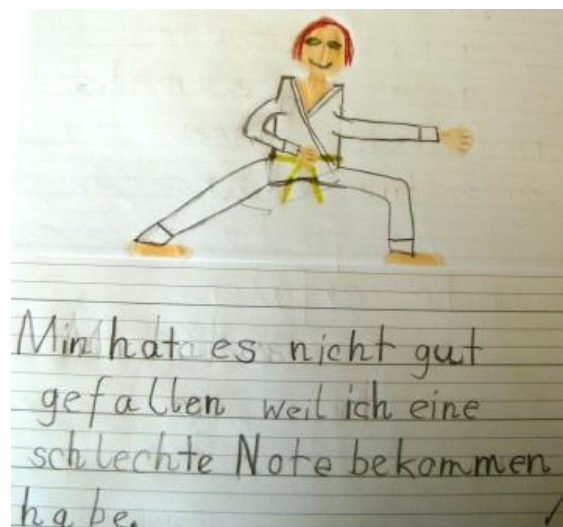 Min hat es nicht gut
gefallen weil ich eine
schlechte Note bekommen
habe.